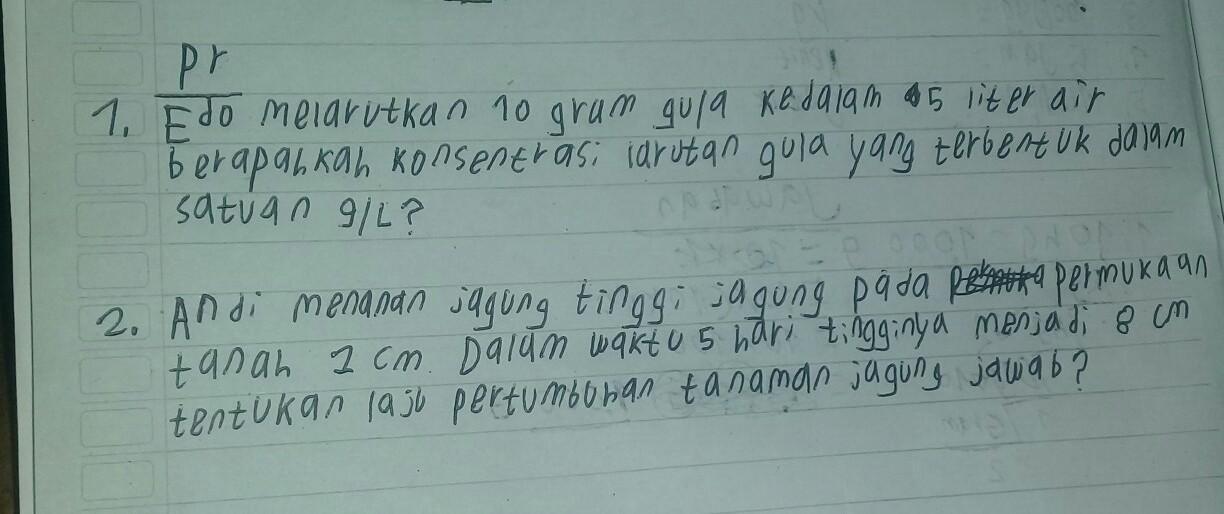 pr
1. Edo melarutkan 10 gram gula kedalam 5 liter air
berapahkah konsentrasi larutan gula yang terbentuk dalam
satuan g/L?
2. Andi menanan jagung tinggi jagung pada permukaan
tanah 2 cm. Dalam waktu 5 hari tingginya menjadi 8 cm
tentukan laju pertumbuhan tanaman jagung jawab?